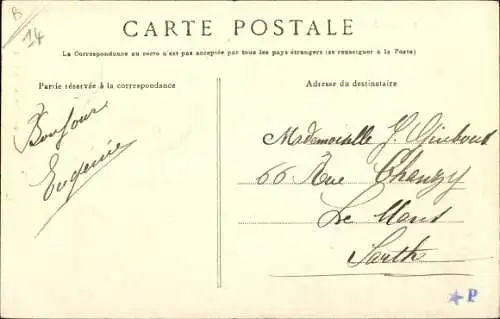 B
14
CARTE POSTALE
La Correspondance au recto n'est pas acceptée par tous les pays étrangers (se renseigner à la Poste)
Partie réservée à la correspondance
Adresse du destinataire
Bonjour
Eugénie
Mademoiselle
66 Rue Chanzy
Le Mans
Sarthe
P